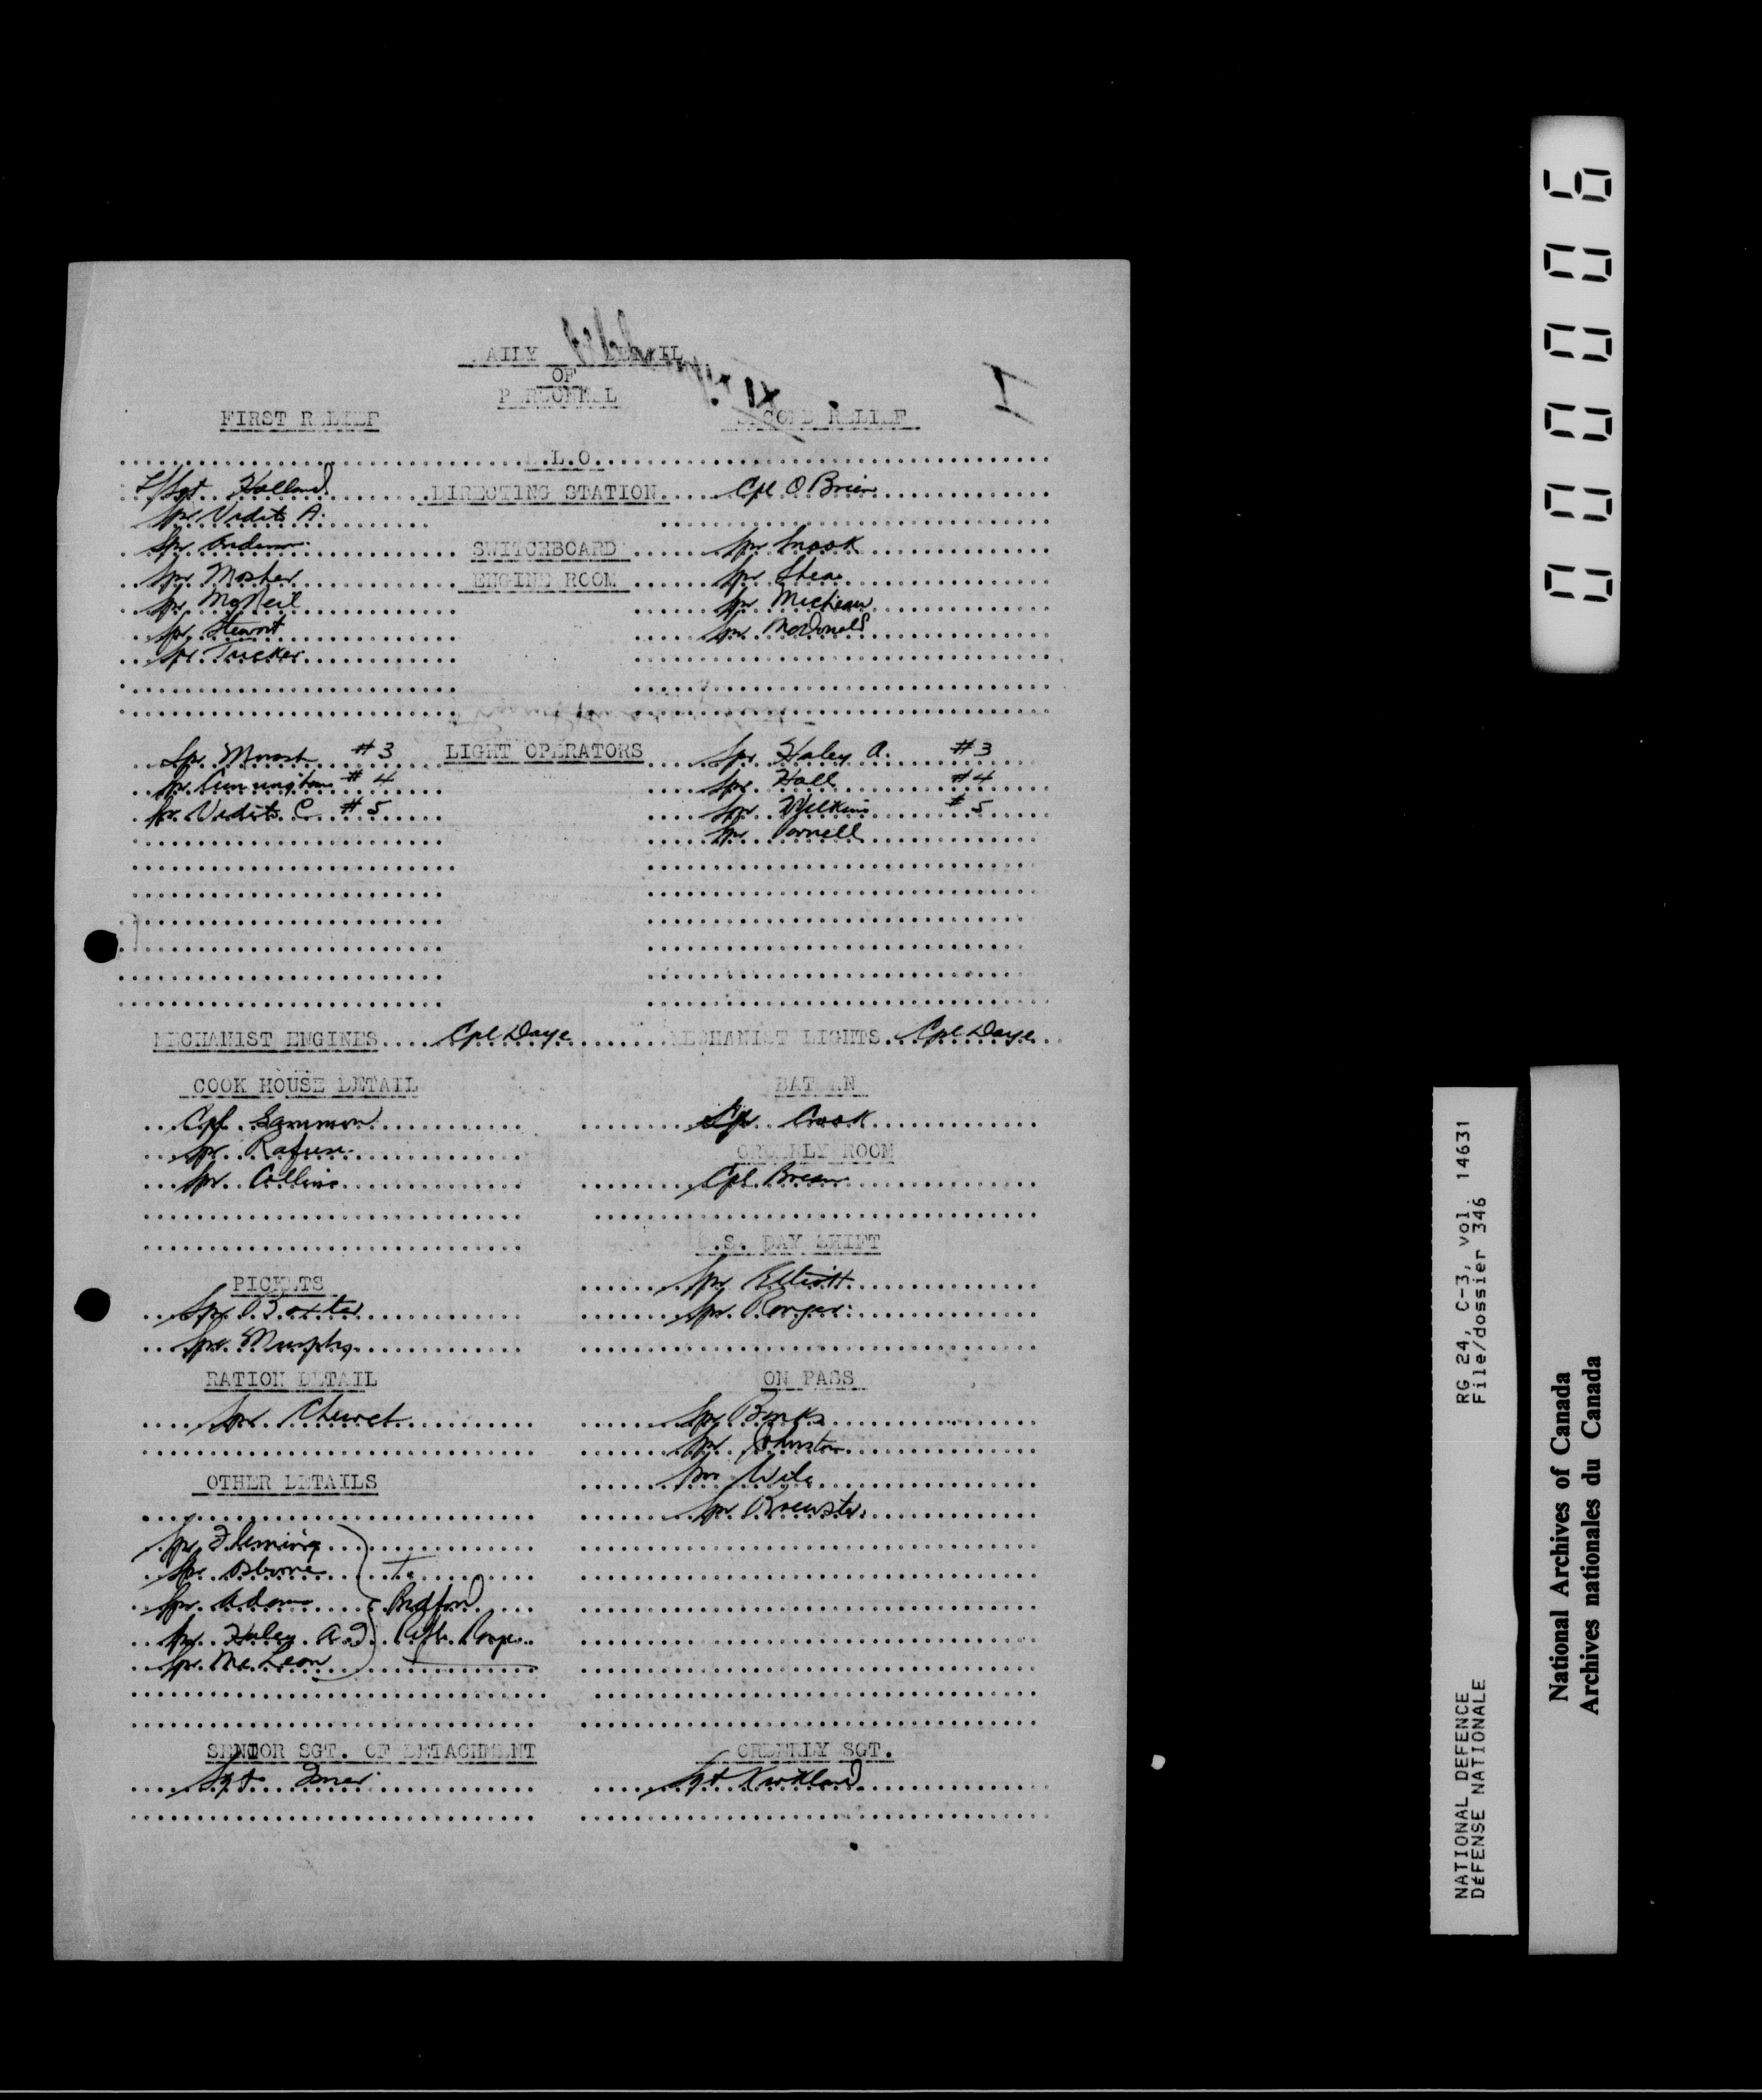 DAILY DETAIL
OF
PERSONNEL
I
FIRST RELIEF SECOND RELIEF
.L.O.
L/Sgt Holland DIRECTING STATION Cpl O Brien
Spr Vedits A.
Spr SWITCHBOARD Spr Snook
Spr Mosher ENGINE ROOM Spr Shea
Spr McNeil Spr Micheau
Spr Stewart Spr MacDonald
Spr Tucker
Spr #3 LIGHT OPERATORS Spr Haley A. #3
Spr Cunningham #4 Spr Hall #4
Spr Vedits C #5 Spr Wilkins #5
Spr Parnell
MECHANIST ENGINES Cpl Daye MECHANIST LIGHTS Cpl Daye
COOK HOUSE DETAIL BATMAN
Cpl Sammon Spr Crook
Spr Rafuse ORDERLY ROOM
Spr Collins Cpl
D.S. DAY SHIFT
PICKETS Spr Elliott
Spr Baxter Spr
Spr Murphy
RATION DETAIL ON PASS
Spr Spr Banks
Spr Johnston
OTHER DETAILS Spr
Spr Brewster
Spr Fleming
Spr Osborne To
Spr Adams Bedford
Spr Haley A.D. Rifle Range
Spr McLean
SENIOR SGT. OF DETACHMENT ORDERLY SGT.
Sgt Sgt Kirkland
000006
RG 24, C-3, vol. 14631
File/dossier 346
NATIONAL DEFENCE
DÉFENSE NATIONALE
National Archives of Canada
Archives nationales du Canada